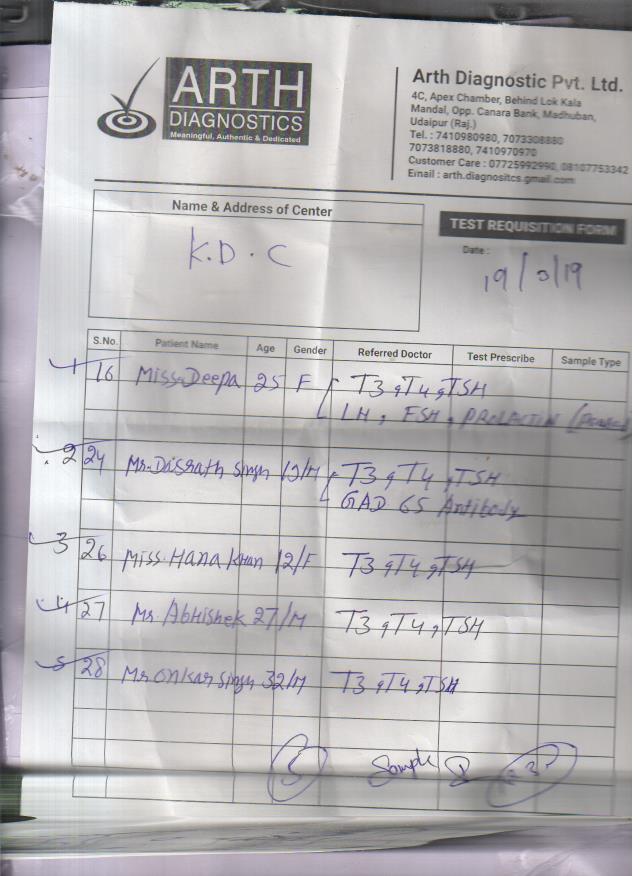 ARTH
DIAGNOSTICS
Meaningful, Authentic & Dedicated
Arth Diagnostic Pvt. Ltd.
4C, Apex Chamber, Behind Lok Kala
Mandal, Opp. Canara Bank, Madhuban,
Udaipur (Raj.)
Tel. : 7410980980, 7073308880
7073818880, 7410970970
Customer Care : 07725992990, 08107753342
Email : arth.diagnositcs.gmail.com
Name & Address of Center
K.D.C
TEST REQUISITION FORM
Date :
19/ /19
S.No. Patient Name Age Gender Referred Doctor Test Prescribe Sample Type
1 16 Miss. Deepa 25 F T3, T4, TSH
LH, FSH, PROLACTIN
2 24 Mr. Dasrath Singh 12/M T3, T4, TSH
GAD 65 Antibody
3 26 Miss. Hana Khan 12/F T3, T4, TSH
4 27 Mr. Abhishek 27/M T3, T4, TSH
5 28 Mr. Onkar Singh 32/M T3, T4, TSH
5 Sample